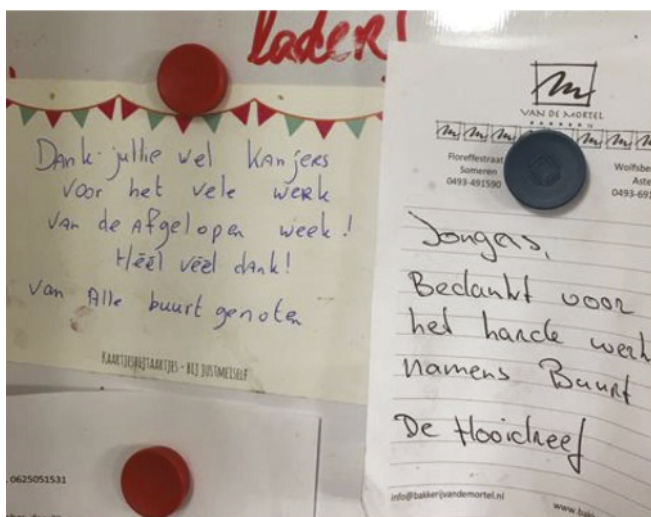 lader!
Dank jullie wel Kanjers
voor het vele werk
van de Afgelopen week!
Héél véél dank!
van Alle buurtgenoten
KAARTJESBIJTAARTJES - BIJ JUSTMEISELF
0625051531
VAN DE MORTEL
Floreffestraat
Someren
0493-491590
Wolfsbe
Aste
0493-691
Jongens,
Bedankt voor
het harde werk
namens Buurt
De Hooidreef
info@bakkerijvandemortel.nl
www.bakk